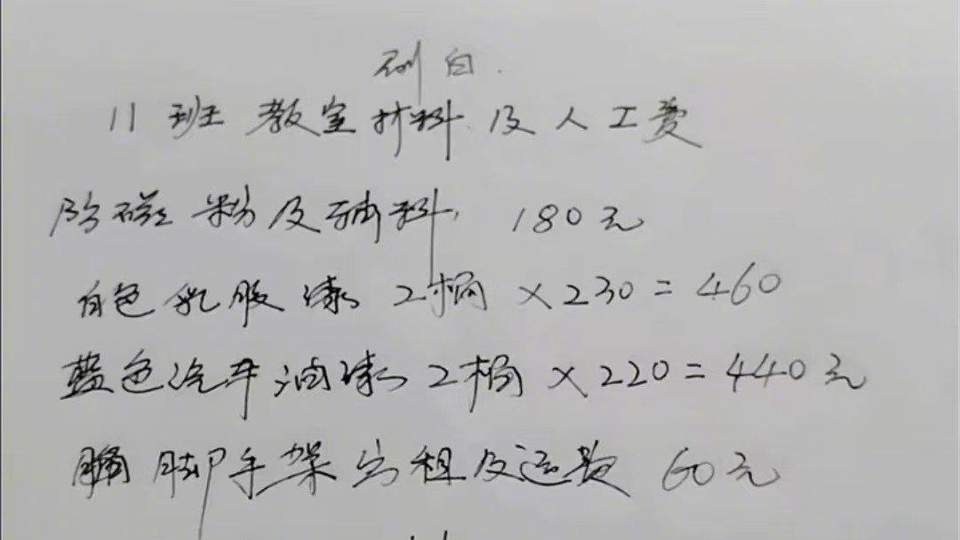 刷白.
11班教室材料及人工费
防磁粉及辅料, 180元
白色乳胶漆 2桶 ×230=460
蓝色汽车油漆 2桶 ×220=440元
脚手架出租及运费 60元